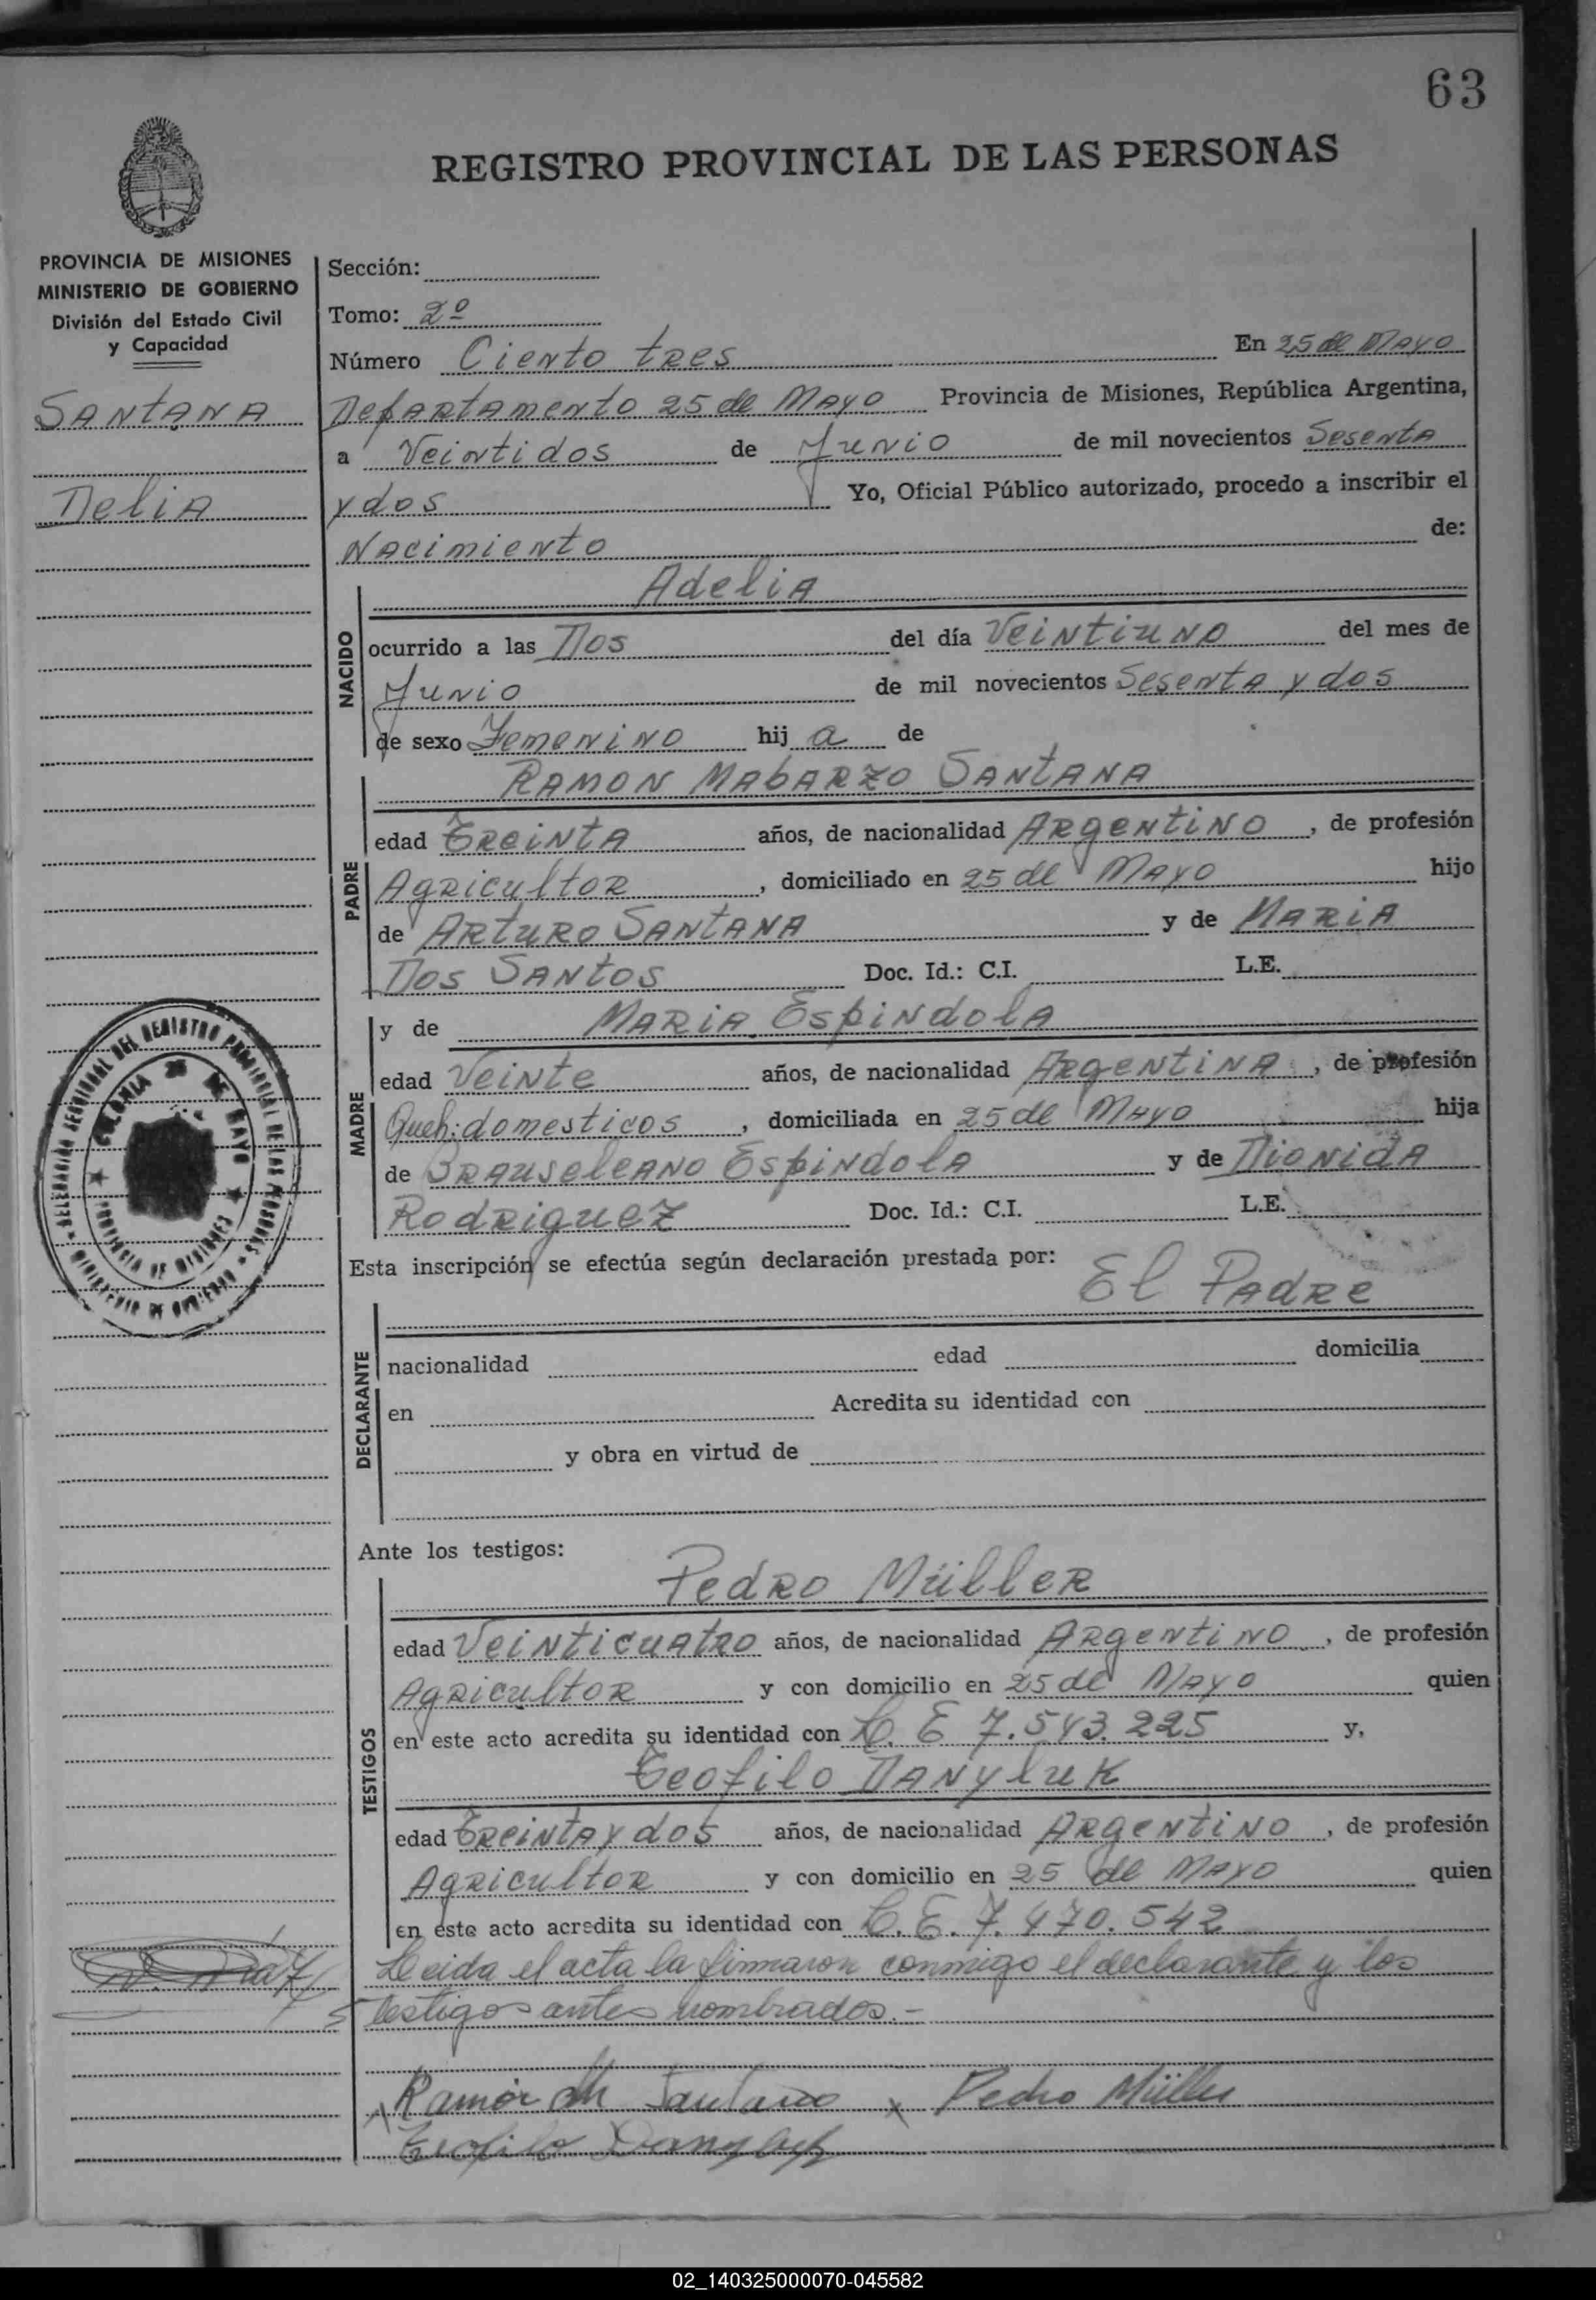 63
REGISTRO PROVINCIAL DE LAS PERSONAS
PROVINCIA DE MISIONES
MINISTERIO DE GOBIERNO
División del Estado Civil
y Capacidad
SANTANA
DELIA
Sección:
Tomo: 2º
Número Ciento tres En 25 de Mayo
Departamento 25 de Mayo Provincia de Misiones, República Argentina,
a Veintidos de Junio de mil novecientos Sesenta
y dos Yo, Oficial Público autorizado, procedo a inscribir el
Nacimiento de:
NACIDO
Adelia
ocurrido a las Dos del día Veintiuno del mes de
Junio de mil novecientos Sesenta y dos
de sexo Femenino hij a de
PADRE
Ramon Mabarzo Santana
edad Treinta años, de nacionalidad Argentino, de profesión
Agricultor, domiciliado en 25 de Mayo hijo
de Arturo Santana y de Maria
Dos Santos Doc. Id.: C.I. L.E.
MADRE
y de Maria Espindola
edad Veinte años, de nacionalidad Argentina, de profesión
Queh: domesticos, domiciliada en 25 de Mayo hija
de Brauseleano Espindola y de Dionida
Rodriguez Doc. Id.: C.I. L.E.
Esta inscripción se efectúa según declaración prestada por:
El Padre
DECLARANTE
nacionalidad edad domicilia
en Acredita su identidad con
y obra en virtud de
Ante los testigos:
TESTIGOS
Pedro Müller
edad Veinticuatro años, de nacionalidad Argentino, de profesión
Agricultor y con domicilio en 25 de Mayo quien
en este acto acredita su identidad con L. E 7.543.225 y,
Teofilo Danyluk
edad Treinta y dos años, de nacionalidad Argentino, de profesión
Agricultor y con domicilio en 25 de Mayo quien
en este acto acredita su identidad con L. E. 7.470.542
Leida el acta la firmaron conmigo el declarante y los
testigos antes nombrados.-
x Ramón M Santana x Pedro Müller
Teofilo Danyluk
DELEGACIÓN SECCIONAL DEL REGISTRO PROVINCIAL DE LAS PERSONAS
MINISTERIO DE GOBIERNO
COLONIA 25 DE MAYO
PROVINCIA DE MISIONES
02_140325000070-045582